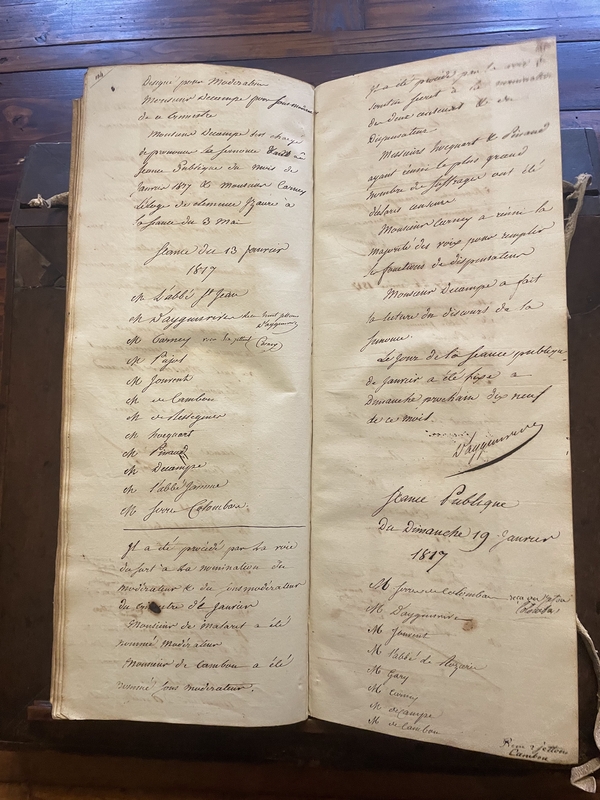 Désigné pour Modérateur
Monsieur Decampe pour sous modérateur
de ce trimestre
Monsieur Decampe est chargé
de prononcer la semonce dans la
séance Publique du mois de
Janvier 1817 & Monsieur Carney
l'éloge de clemence Izaure à
la séance du 3 Mai
Séance du 13 Janvier
1817
M L'abbé St Jean
M D'ayguesvives
D'ayguesvives
M Carney reçu le jeton Carney
M Pujol
M Jouvent
M de Cambon
M de Resseguier
M hocquart
M Pinaud
M Decampe
M l'abbé Jamme
M Serres Colombars
Il a été procédé par la voie
du sort à la nomination du
modérateur & du sous modérateur
du trimestre de Janvier
Monsieur de malaret a été
nommé modérateur
Monsieur de Cambon a été
nommé sous modérateur.
Il a été procédé par la voix du
scrutin secret à la nomination
de deux censeurs & du
dispensateur
Messieurs hocquart & Pinaud
ayant réuni le plus grand
nombre de suffrages ont été
déclarés censeurs
Monsieur Carney a réuni la
majorité des voix pour remplir
les fonctions de dispensateur
Monsieur Decampe a fait
la lecture du discours de la
semonce.
Le jour de la séance publique
de Janvier a été fixé a
Dimanche prochain dix neuf
de ce mois.
D'ayguesvives
Séance Publique
Du Dimanche 19 Janvier
1817
M Serres de Colombars reçu un jeton
M D'ayguesvives
M Jouvent
M l'abbé de Rozaria
M Gary
M Carney
M decampe
M de Cambon
Reçu 2 jettons
Cambon